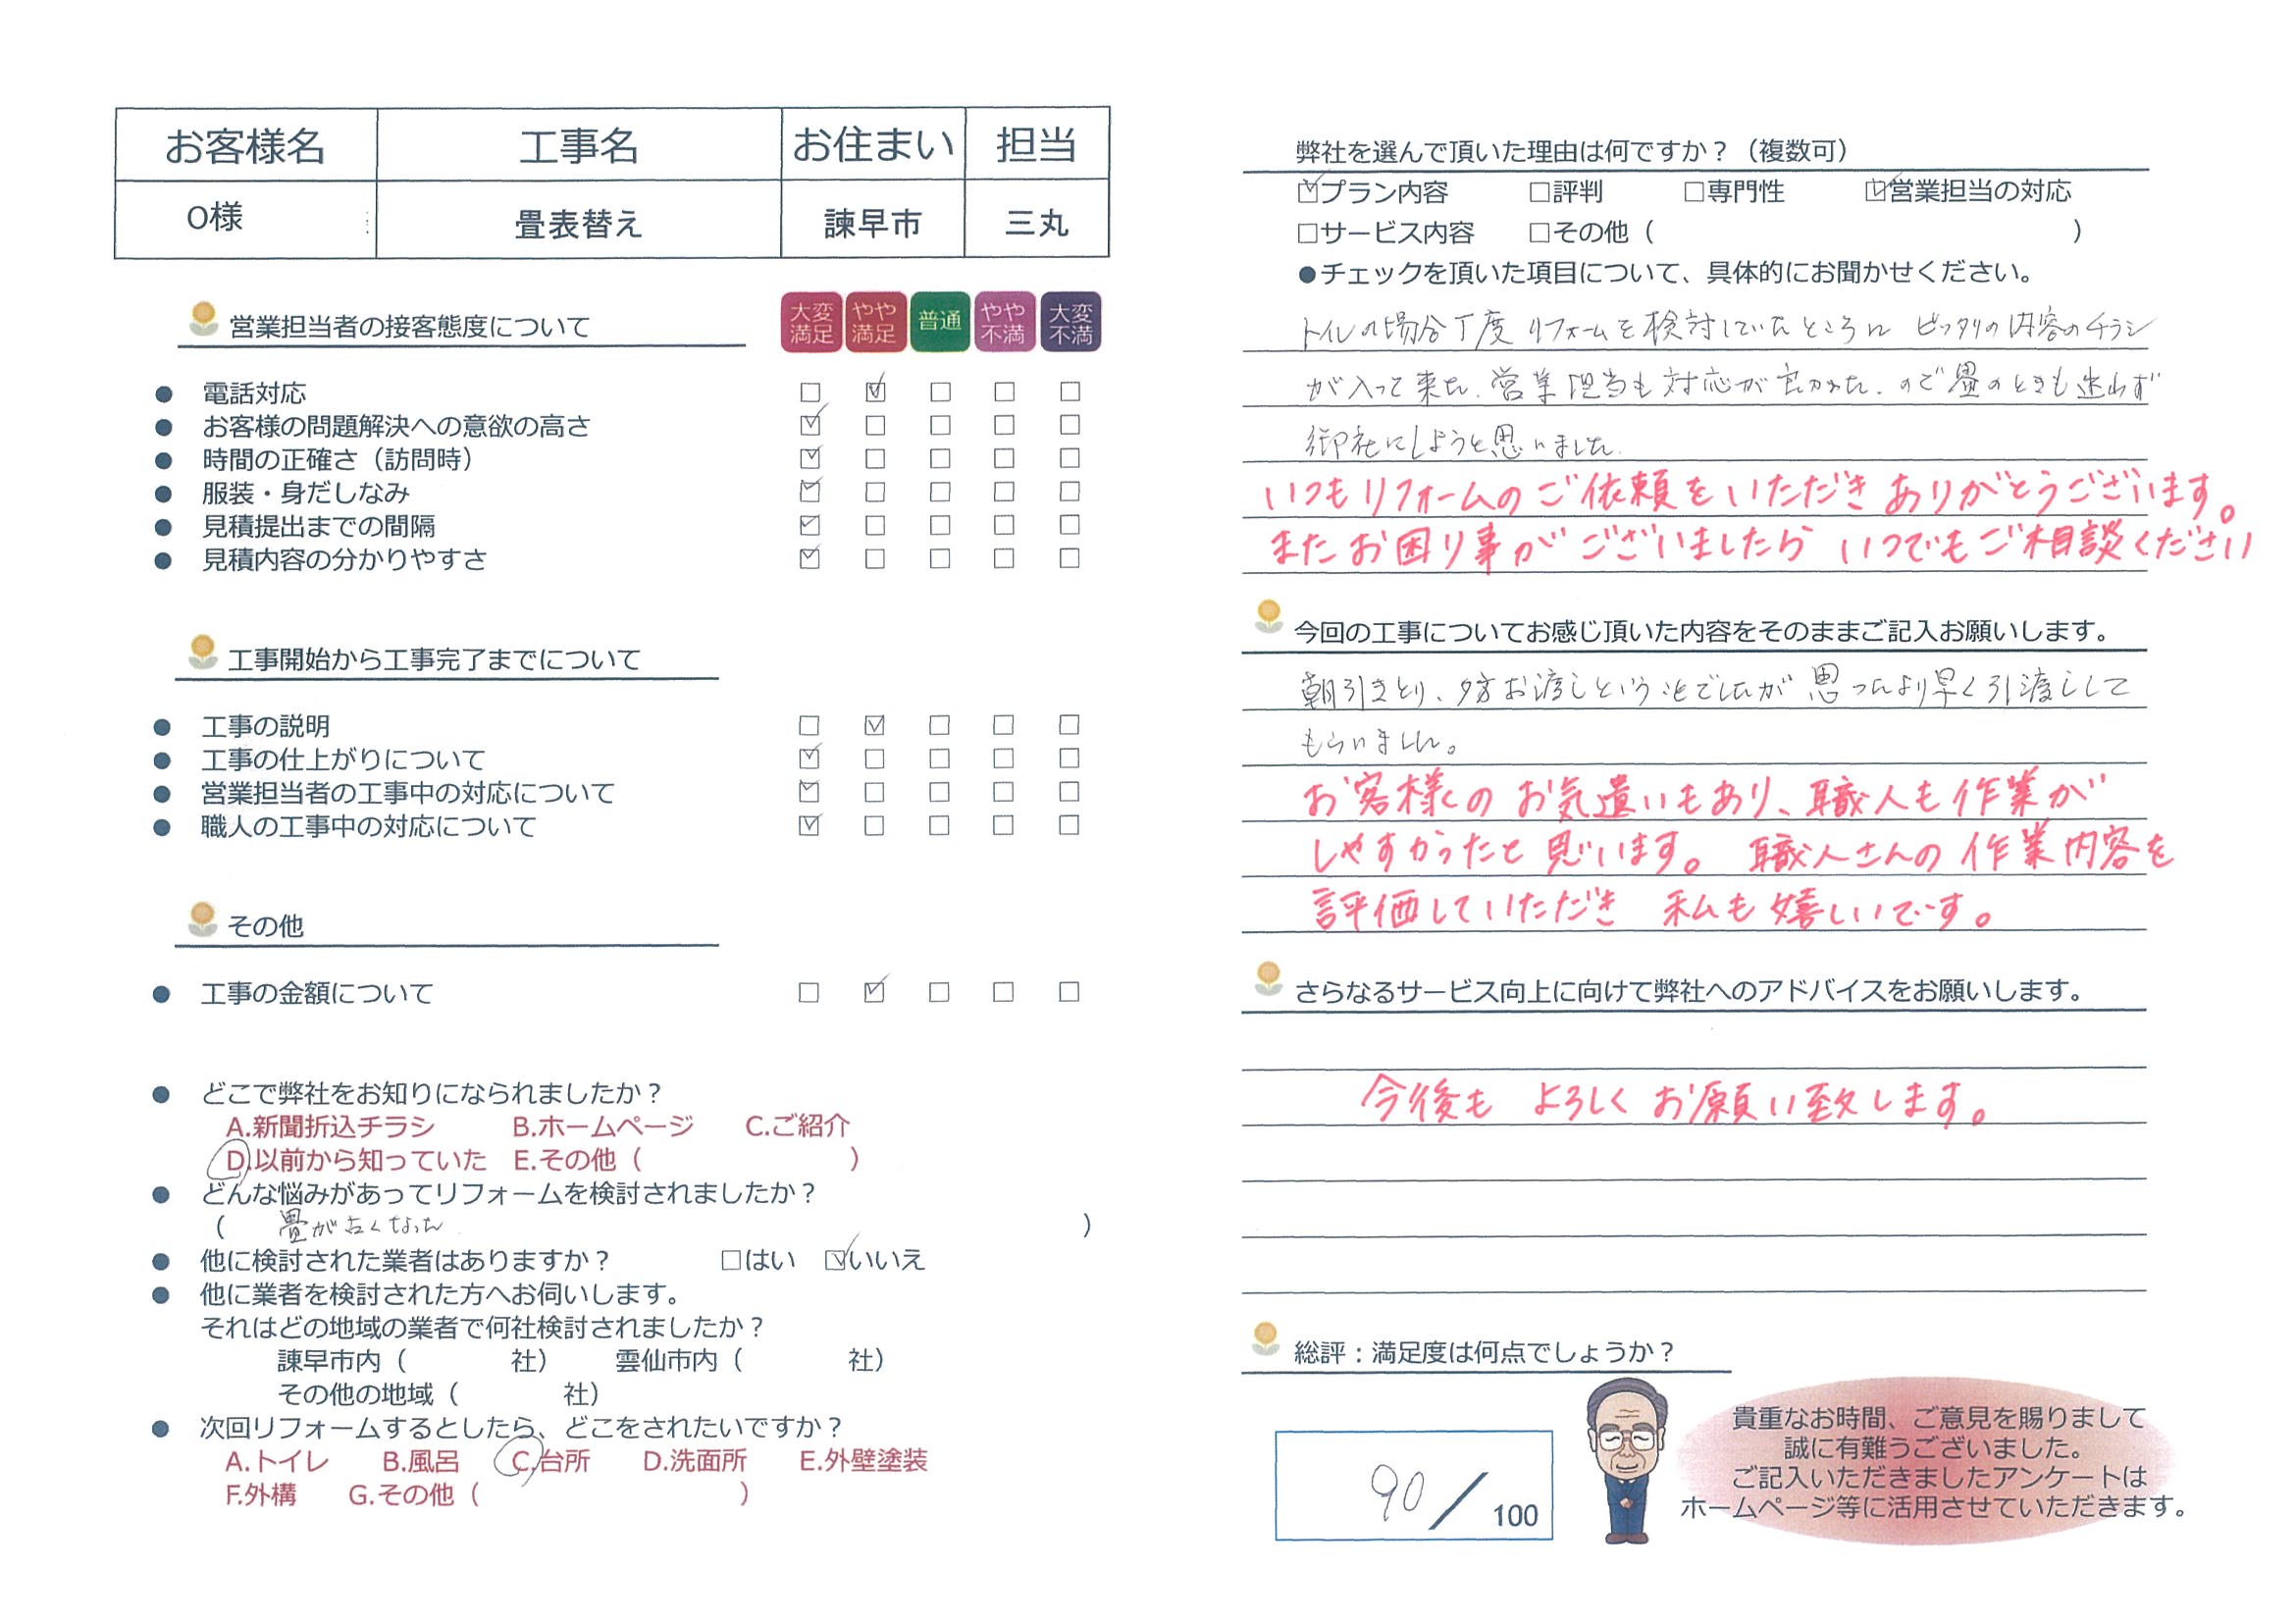 お客様名 工事名 お住まい 担当
O様 畳表替え 諫早市 三丸
営業担当者の接客態度について
大変満足 やや満足 普通 やや不満 大変不満
● 電話対応 □ ☑ □ □ □
● お客様の問題解決への意欲の高さ ☑ □ □ □ □
● 時間の正確さ（訪問時） ☑ □ □ □ □
● 服装・身だしなみ ☑ □ □ □ □
● 見積提出までの間隔 ☑ □ □ □ □
● 見積内容の分かりやすさ ☑ □ □ □ □
工事開始から工事完了までについて
● 工事の説明 □ ☑ □ □ □
● 工事の仕上がりについて ☑ □ □ □ □
● 営業担当者の工事中の対応について ☑ □ □ □ □
● 職人の工事中の対応について ☑ □ □ □ □
その他
● 工事の金額について □ ☑ □ □ □
● どこで弊社をお知りになられましたか？
A.新聞折込チラシ B.ホームページ C.ご紹介
D.以前から知っていた E.その他（ ）
● どんな悩みがあってリフォームを検討されましたか？
（ 畳が古くなった ）
● 他に検討された業者はありますか？ □はい ☑いいえ
● 他に業者を検討された方へお伺いします。
それはどの地域の業者で何社検討されましたか？
諫早市内（ 社） 雲仙市内（ 社）
その他の地域（ 社）
● 次回リフォームするとしたら、どこをされたいですか？
A.トイレ B.風呂 C.台所 D.洗面所 E.外壁塗装
F.外構 G.その他（ ）
弊社を選んで頂いた理由は何ですか？（複数可）
☑プラン内容 □評判 □専門性 ☑営業担当の対応
□サービス内容 □その他（ ）
●チェックを頂いた項目について、具体的にお聞かせください。
トイレの場合丁度リフォームを検討していたところに ピッタリの内容のチラシ
が入って来た．営業担当も対応が良かった．ので畳のときも迷わず
御社にしようと思いました．
いつもリフォームのご依頼をいただきありがとうございます。
またお困り事がございましたら いつでもご相談ください
今回の工事についてお感じ頂いた内容をそのままご記入お願いします。
朝引きとり、夕方お渡しということでしたが 思ったより早く引渡しして
もらいました。
お客様のお気遣いもあり、職人も作業が
しやすかったと思います。 職人さんの作業内容を
評価していただき 私も嬉しいです。
さらなるサービス向上に向けて弊社へのアドバイスをお願いします。
今後も よろしくお願い致します。
総評：満足度は何点でしょうか？
90/100
貴重なお時間、ご意見を賜りまして
誠に有難うございました。
ご記入いただきましたアンケートは
ホームページ等に活用させていただきます。